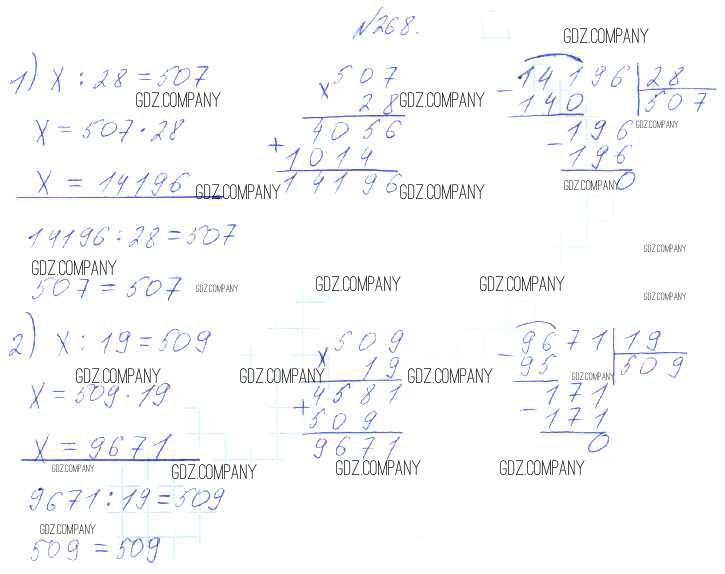 №268.
GDZ.COMPANY
1) x : 28 = 507
GDZ.COMPANY
x = 507 · 28
x = 14196
GDZ.COMPANY
14196 : 28 = 507
GDZ.COMPANY
507 = 507
GDZ.COMPANY
507
x 28
GDZ.COMPANY
4056
+ 1014
14196
GDZ.COMPANY
- 14196 | 28
140 507
GDZ.COMPANY
- 196
196
GDZ.COMPANY
0
GDZ.COMPANY
GDZ.COMPANY
GDZ.COMPANY
GDZ.COMPANY
2) x : 19 = 509
GDZ.COMPANY
x = 509 · 19
x = 9671
GDZ.COMPANY
GDZ.COMPANY
9671 : 19 = 509
GDZ.COMPANY
509 = 509
509
x 19
GDZ.COMPANY
GDZ.COMPANY
4581
+ 509
9671
GDZ.COMPANY
- 9671 | 19
95 509
GDZ.COMPANY
171
- 171
0
GDZ.COMPANY